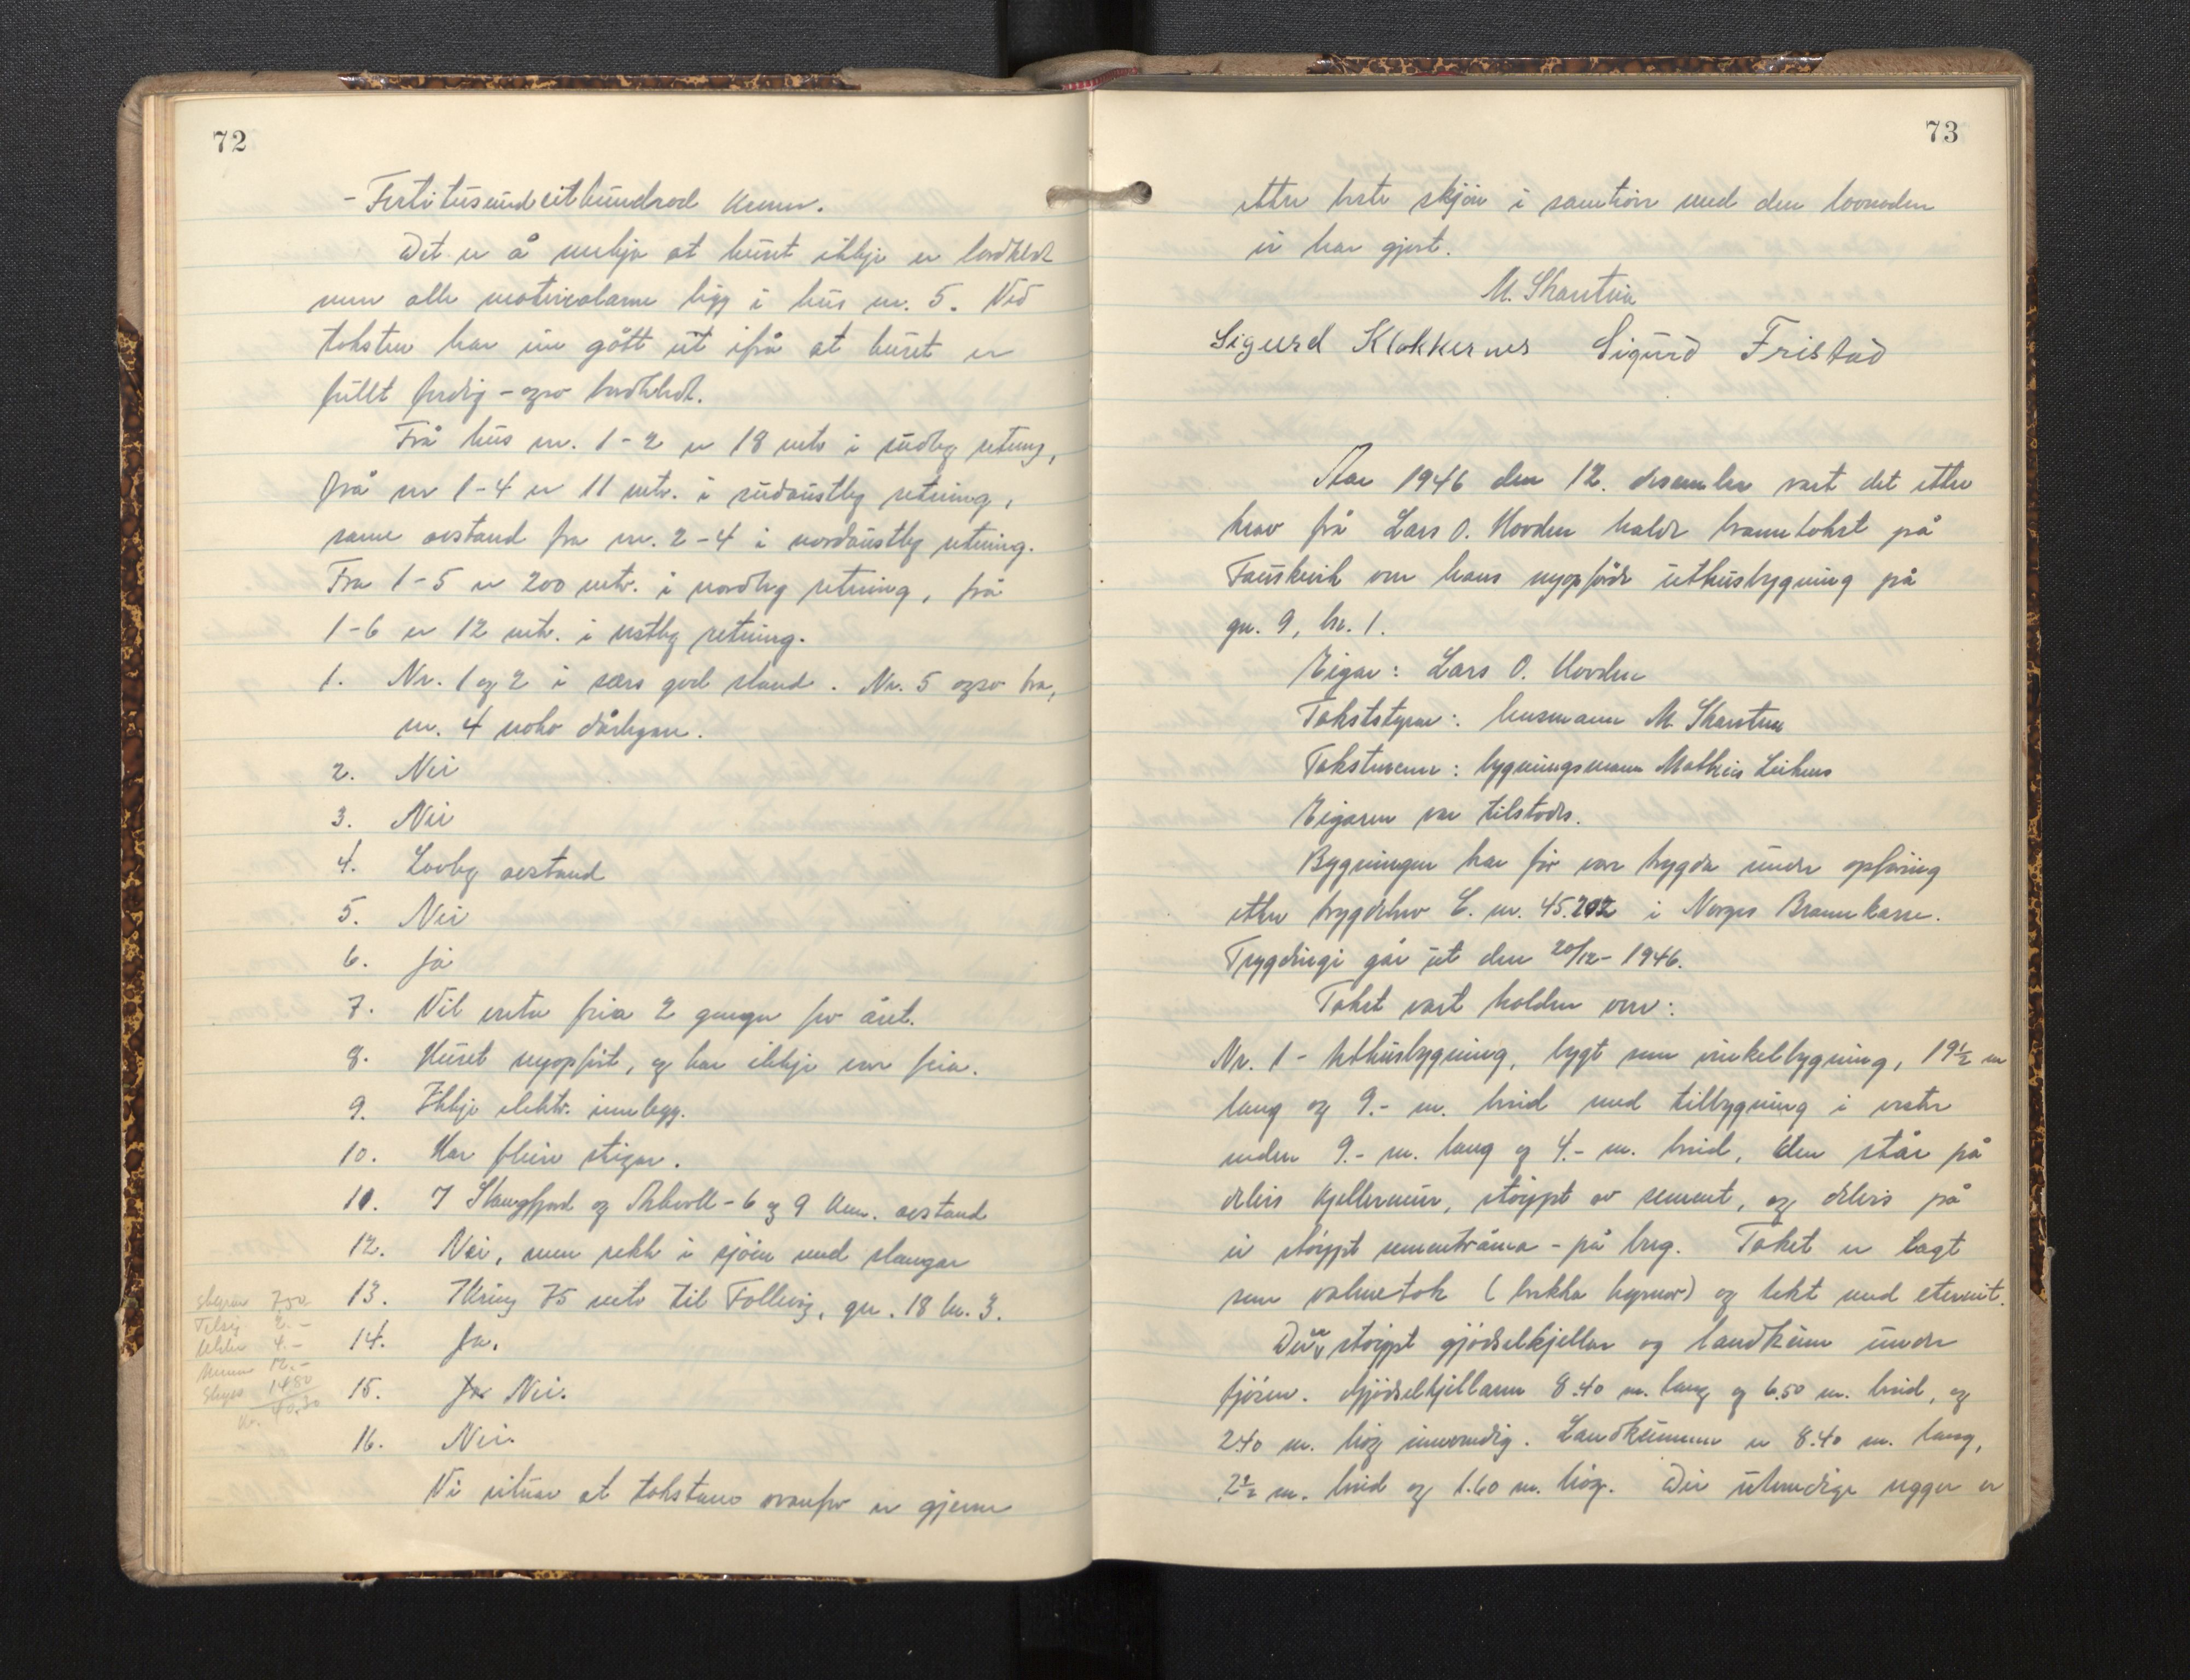 72
- Førtitusundeithundrad kroner.
Det er å merkja at huset ikkje er bordkledt
men alle materialarne ligg i hus nr. 5. Ved
taksten har ein gått ut ifrå at huset er
fullt ferdig - ogso bordkledt.
Frå hus nr. 1-2 er 18 metr i sudleg retning,
frå nr 1-4 er 11 metr. i sudaustleg retning,
same avstand fra nr. 2-4 i nordaustleg retning.
Fra 1-5 er 200 metr. i nordleg retning, frå
1-6 er 12 metr. i vestleg retning.
1. Nr. 1 og 2 i særs god stand. Nr. 5 ogso bra,
nr. 4 noko dårlegare.
2. Nei
3. Nei
4. Lovleg avstand
5. Nei
6. Ja
7. Vil verta feia 2 gonger for året.
8. Huset nyoppført, og har ikkje vore feia.
9. Ikkje elektr. innlegg.
10. Har fleire stigar.
11. I Stongfjord og Askvoll - 6 og 9 km. avstand
12. Nei, men rekk i sjøen med slangar
13. Ikring 75 metr til Follevåg, gn. 18 br. 3.
14. Ja.
15. Ja Nei.
16. Nei.
Vi vitnar at takstane ovanfor er gjevne
Styrar 7.50
Telef. 2.-
4.-
12.-
Skyss 14.80
kr. 40.30
73
etter beste skjøn i samhøve med den lovnaden
vi har gjort.
M. Skarstein
Sigurd Klokkernes Sigurd Fristad
Aar 1946 den 12. desember vart det etter
krav frå Lars O. Hovden halde branntakst på
Fauskevik over hans nyoppførde uthusbygning på
gn. 9, br. 1.
Eigar: Lars O. Hovden
Takststyrar: lensmann M. Skarstein
Takstmenn: bygningsmann Mathias Leiknes
Eigaren var tilstades.
Bygningen har før vore trygda under oppføring
etter trygdebrev L. nr. 45.202 i Norges Brannkasse.
Trygdingi går ut den 20/12- 1946.
Takst vart halden over:
Nr. 1 - Uthusbygning, bygt som vinkelbygning, 19½ m
lang og 9.- m. breid med tilbygning i vestre
enden 9.- m. lang og 4.- m. breid, den står på
delvis kjellermur, støypt av sement, og delvis på
ei støypt sementråma - på berg. Taket er lagt
som valmetak (brekka hyrnor) og tekt med eternit.
Der er støypt gjødselkjellar og landkum under
fjøsen. Gjødselkjellaren 8.40 m. lang og 6.50 m. breid, og
2.40 m. høg innvendig. Landkummen er 8.40 m. lang,
2½ m. breid og 1.60 m. høg. Dei utvendige vegger er